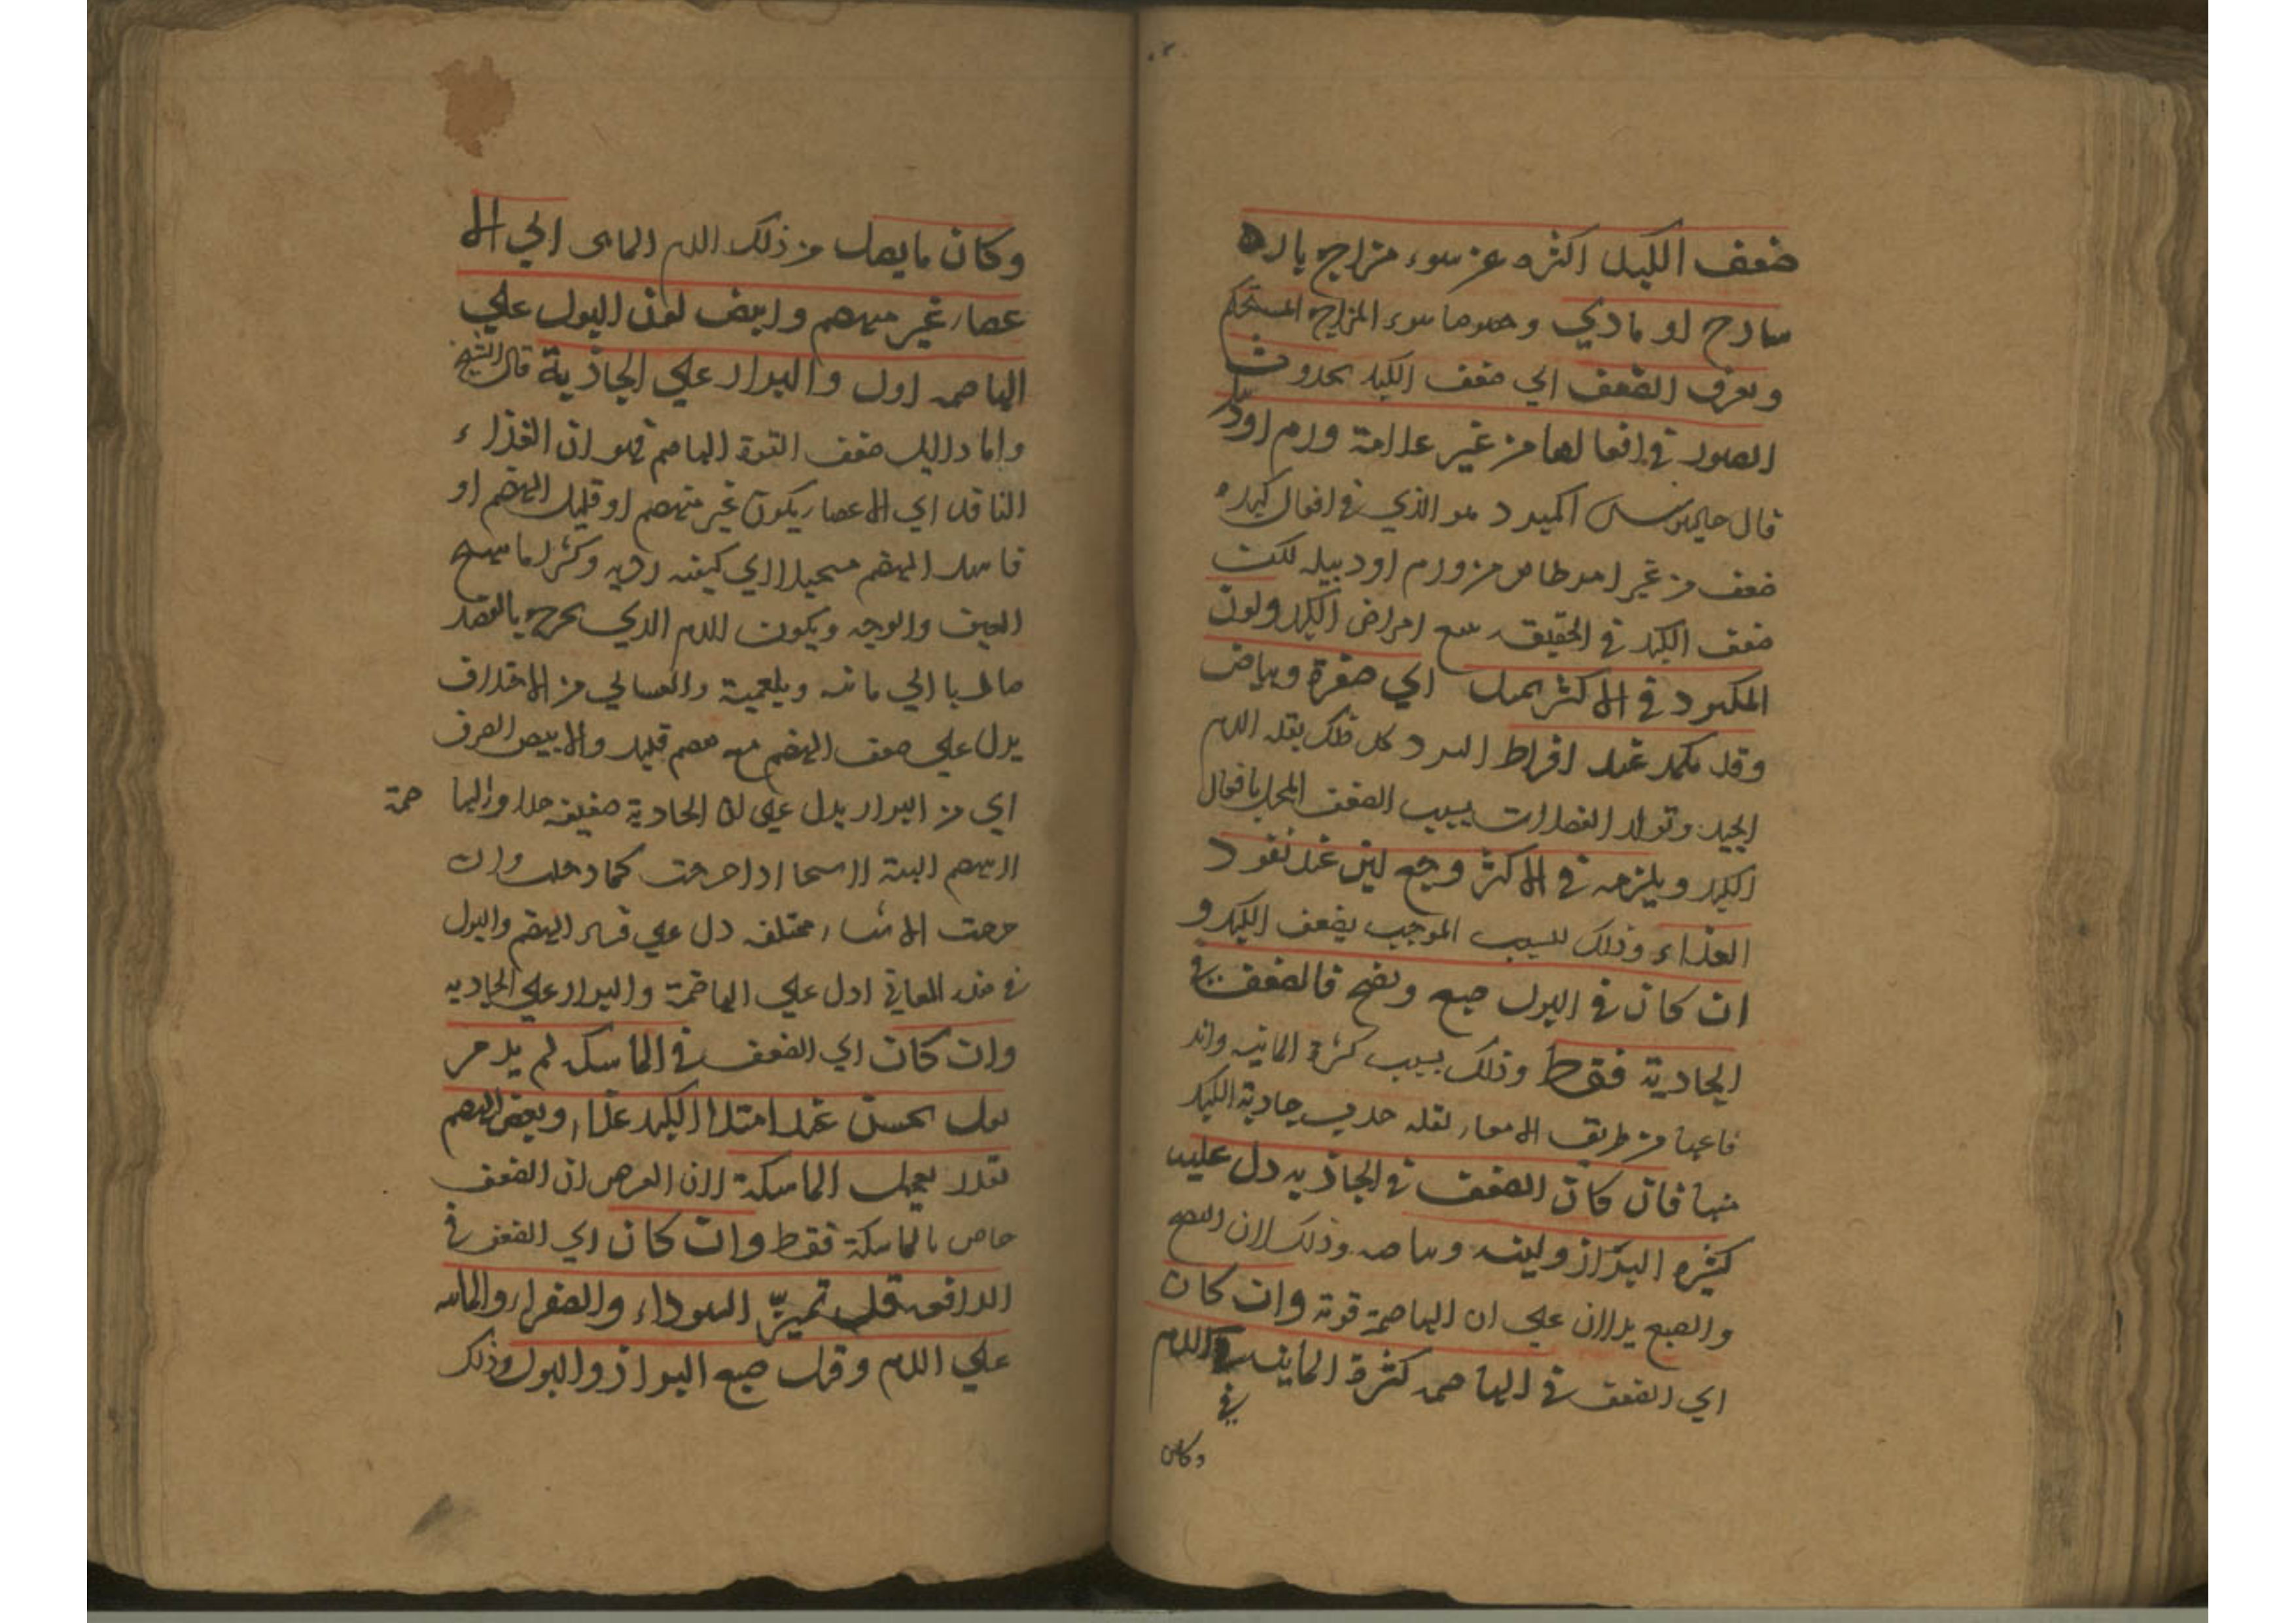 ضعف الكبد اكثره عن سوء مزاج بارد
سادج او مادي وخصوصا سوء المزاج المستحكم
ويعرف الضعف اي ضعف الكبد بحدوث
الضرر في افعالها من غير علامة ورم او دبيلة
قال جالينوس المكبود هو الذي في افعال كبده
ضعف من غير امر ظاهر من ورم او دبيله لكن
ضعف الكبد في الحقيقه يتبع امراض الكبد ولون
المكبود في الاكثر يميل الي صفرة وبياض
وقد يكمد عند افراط البرد كل ذلك بقله الدم
الجيد وتولد الفضلات بسبب الضعف المخل بافعال
الكبد ويلزمه في الاكثر وجع لين عند نفود
الغذاء وذلك لسبب الموجب بضعف الكبد و
ان كان في البول صبع ونضج فالضعف في
الجاذبة فقط وذلك بسبب كثرة المائيه
من طريق الامعاء لقله جذب جاذبة الكبد
فان كان الضعف في الجاذبه دل عليه
كثره البراز ولينه وبياضه وذلك لان النضج
والصبع يدلان علي ان الهاضمة قوية وان كان
اي الضعف في الهاضمه كثرة المائيه الدم
في
وكان
وكان ما يصل من ذلك الدم المائي الي الا
عضاء غير منهضم وابيض لون البول علي
الهاضمه اول والبراز علي الجاذبة قال الشيخ
واما دليل ضعف القوة الهاضمه فهو ان الغذاء
النافد الي الاعضاء يكون غير منهضم او قليل الهضم او
فاسد الهضم مستحيلا الي كيفيه رديه وكثيرا ما يتهيج
العين والوجه ويكون الدم الذي يخرج بالفصد
مايلا الي مائيه وبلغمية والغسالي من الاختلاف
يدل علي ضعف الهضم مع هضم قليل والابيض الصرف
اي من البراز يدل علي ان الجاذبة ضعيفه جدا والها
ضمة
لا تهضم البتة لا سيما اذا خرجت كما دخلت وان
خرجت الاشياء مختلفه دل علي فساد الهضم والبول
في هذه المعاني ادل علي الهاضمة والبراز علي الجاذبه
وان كان اي الضعف في الماسكه لم يدم
بحسن عند امتلا الكبد غذاء وبعض الهضم
لقله الماسكة لان الغرض ان الضعف
خاص بالماسكة فقط وان كان اي الضعف في
الدافعه قل تميز السوداء والصفراء والمائيه
علي الدم وقل صبع البراز والبول وذلك